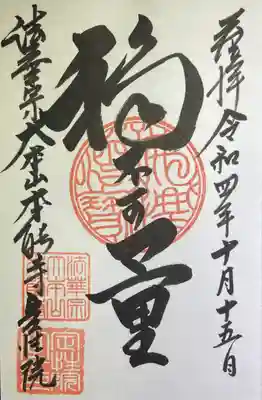 謹拝 令和四年十月十五日
福不可量
法華宗大本山本能寺
法華宗
大本山